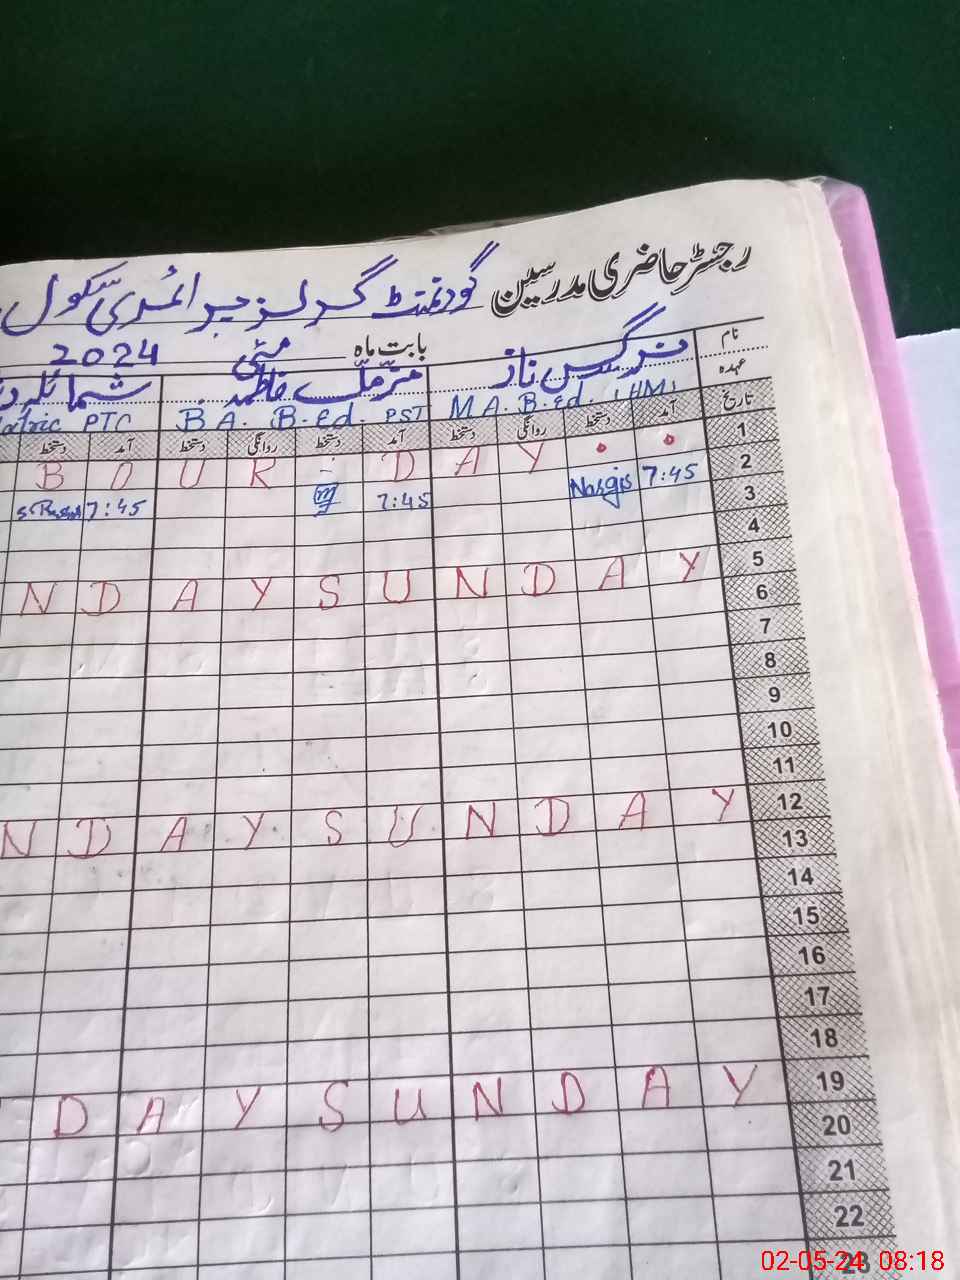 رجسٹر حاضری مدرسین گورنمنٹ گرلز پرائمری سکول
بابت ماہ مئی 2024
نام نرگس ناز مزمل فاطمہ شمائلہ
عہدہ M A. B.Ed. (HM) B A. B-Ed. PST PTC
تاریخ آمد دستخط روانگی دستخط آمد دستخط روانگی دستخط آمد دستخط
1 . . Y A D - R U O B
2 7:45 Nargis 7:45 7:45
3
4
5 Y A D N U S Y A D N
6
7
8
9
10
11
12 Y A D N U S Y A D N
13
14
15
16
17
18
19 Y A D N U S Y A D
20
21
22
23
02-05-24 08:18